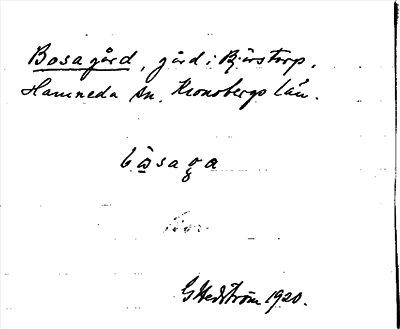 Bosagård, gård i Bjärstorp,
Hamneda sn. Kronobergs län.
bosaga
G Hedström 1920.